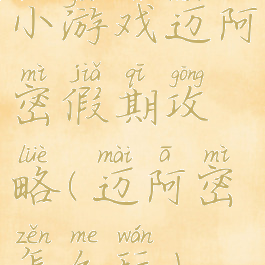 小游戏迈阿
mì jiǎ qī gōng
密假期攻
lüè mài ā mì
略(迈阿密
zěn me wán
怎么玩)